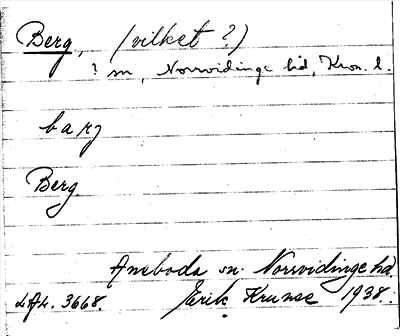 Berg, (vilket?)
? sn, Norrvidinge hd, Kron. l.
barj
Berg
Aneboda sn. Norrvidinge hd.
4A4. 3668. Erik Krunse 1938.